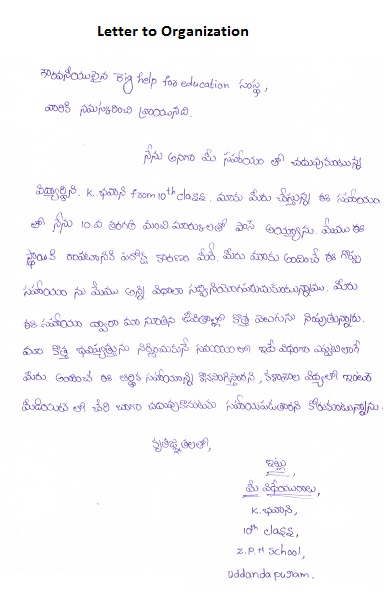 Letter to Organization
గౌరవనీయులైన Big help for education సంస్థ,
వారికి నమస్కరించి వ్రాయునది.
నేను అనగా మీ సహాయం తో చదువుకుంటున్న
విద్యార్థిని. K. భవాని from 10th class. మాకు మీరు చేస్తున్న ఈ సహాయం
తో నేను 10 వ తరగతి మంచి మార్కులతో పాస్ అయ్యాను. మేము ఈ
స్థాయికి రావటానికి పరోక్ష కారణం మీరే. మీరు మాకు అందించే ఈ గొప్ప
సహాయం ను మేము అన్ని విధాలా సద్వినియోగపరుచుకుంటున్నాము. మీరు
ఈ సహాయం ద్వారా మా నూతన జీవితాల్లో కొత్త వెలుగును నింపుతున్నారు.
మా కొత్త భవిష్యత్తును నిర్మించుకునే సమయంలో ఇదే విధంగా ఎప్పటిలాగే
మీరు అందించే ఈ ఆర్థిక సహాయాన్ని కొనసాగిస్తారని, కళాశాల విద్యలో ఇంటర్
మీడియట్ లో చేరి బాగా చదువుకొనుటకు సహాయపడుతారని కోరుకుంటున్నాను.
కృతజ్ఞతలతో,
ఇట్లు
మీ విధేయురాలు,
K. భవాని,
10th class,
Z.P.H School,
Uddandapuram.